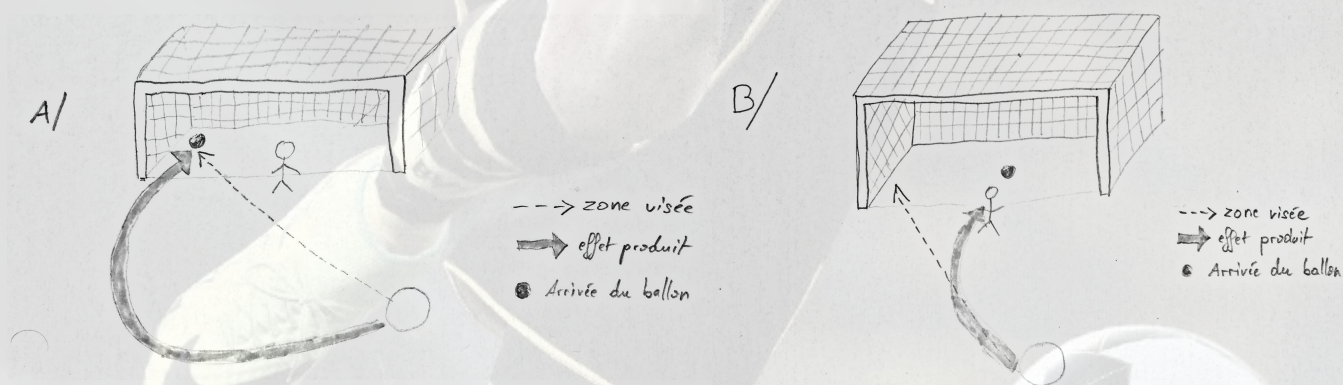 A/
---> zone visée
effet produit
Arrivée du ballon
B/
---> zone visée
effet produit
Arrivée du ballon